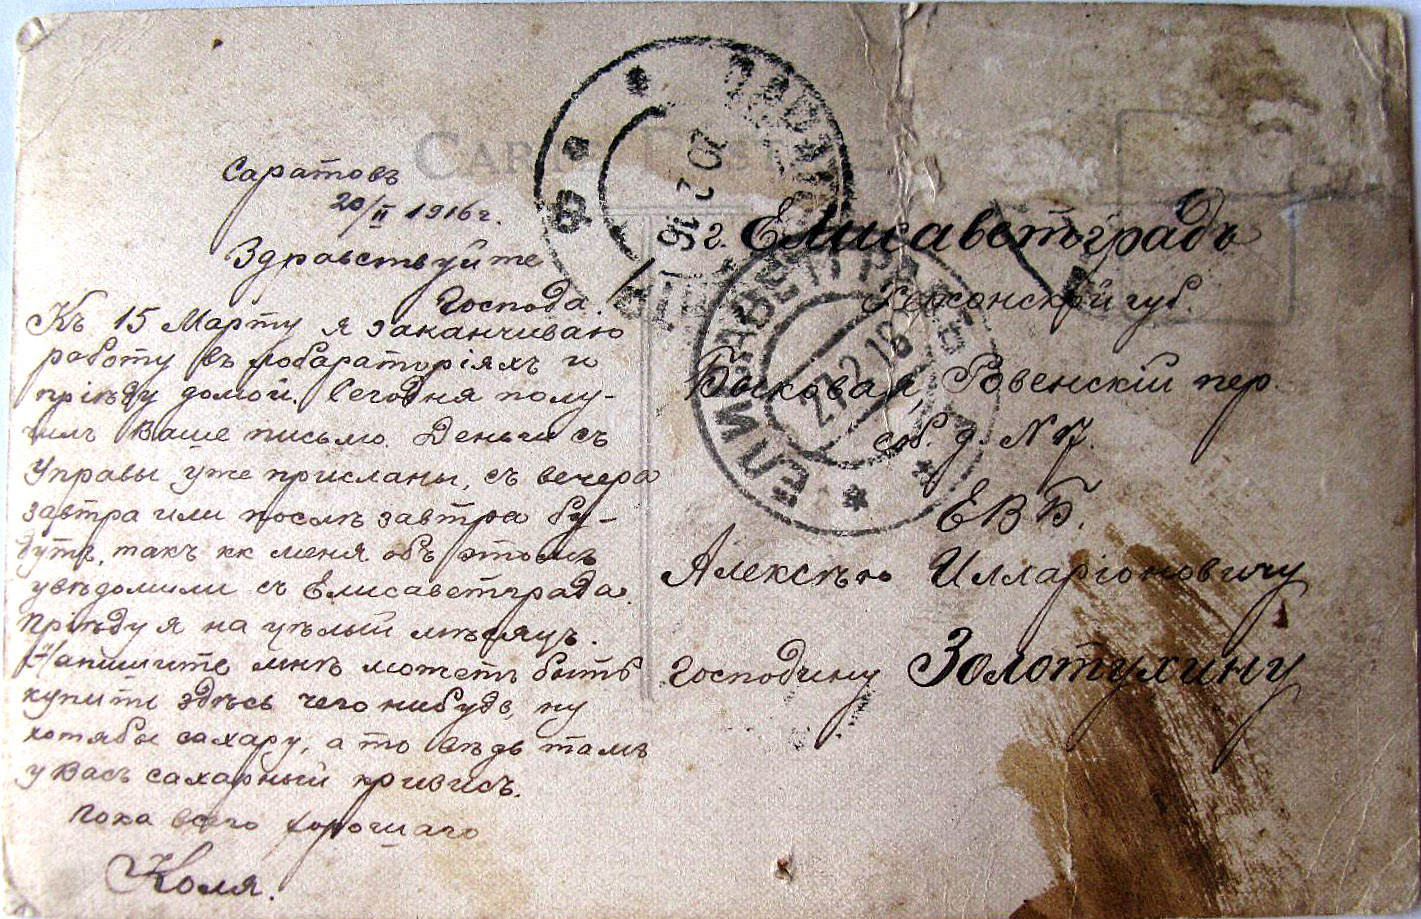 CARTE POSTALE
Саратовъ
20/II 1916 г.
Здравствуйте
Господа.
Къ 15 Марту я заканчиваю
работу въ лобараторіяхъ и
пріѣду домой. Сегодня полу-
чилъ Ваше письмо. Деньги съ
Управы уже присланы, съ вечера
завтра или послѣ завтра бу-
дутъ, такъ кк меня объ этомъ
увѣдомили съ Елисаветграда.
Пріѣду я на цѣлый мѣсяцъ.
Напишите мнѣ можетъ быть
купить здѣсь чего нибудь, ну
хотябы сахару, а то вѣдь тамъ
у васъ сахарный кризисъ.
Пока всего хорошаго
Коля.
20 2 16
г. Елисаветградъ
Херсонской губ.
ЕЛИСАВЕТГРАДЪ
27.2.16
Быковая, Ровенскій пер.
соб. д. № 17.
ЕВБ.
Алексѣю Илларіоновичу
господину Золотухину